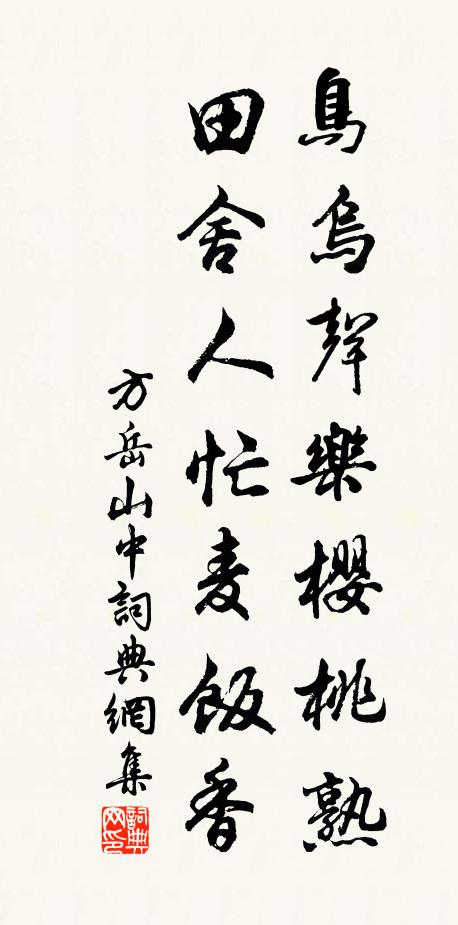 鳥烏聲樂櫻桃熟
田舍人忙麦飯香
方岳山中詞典網集
詞典网印